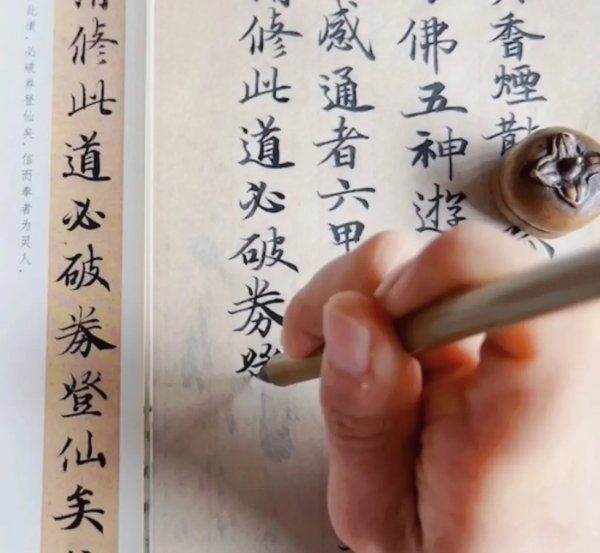 香煙散
佛五神遊
感通者六甲
修此道必破券登
修此道必破券登仙矣
此道.必破券登仙矣.信而奉者为灵人.